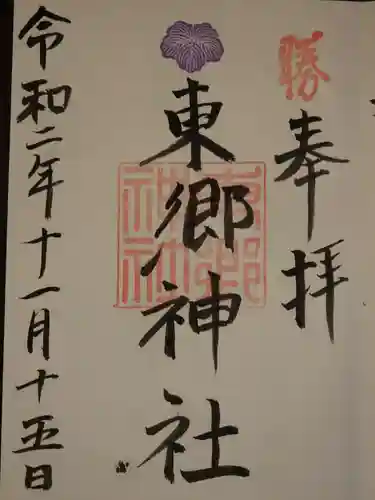 勝
奉拝
東郷神社
東郷神社
令和二年十一月十五日